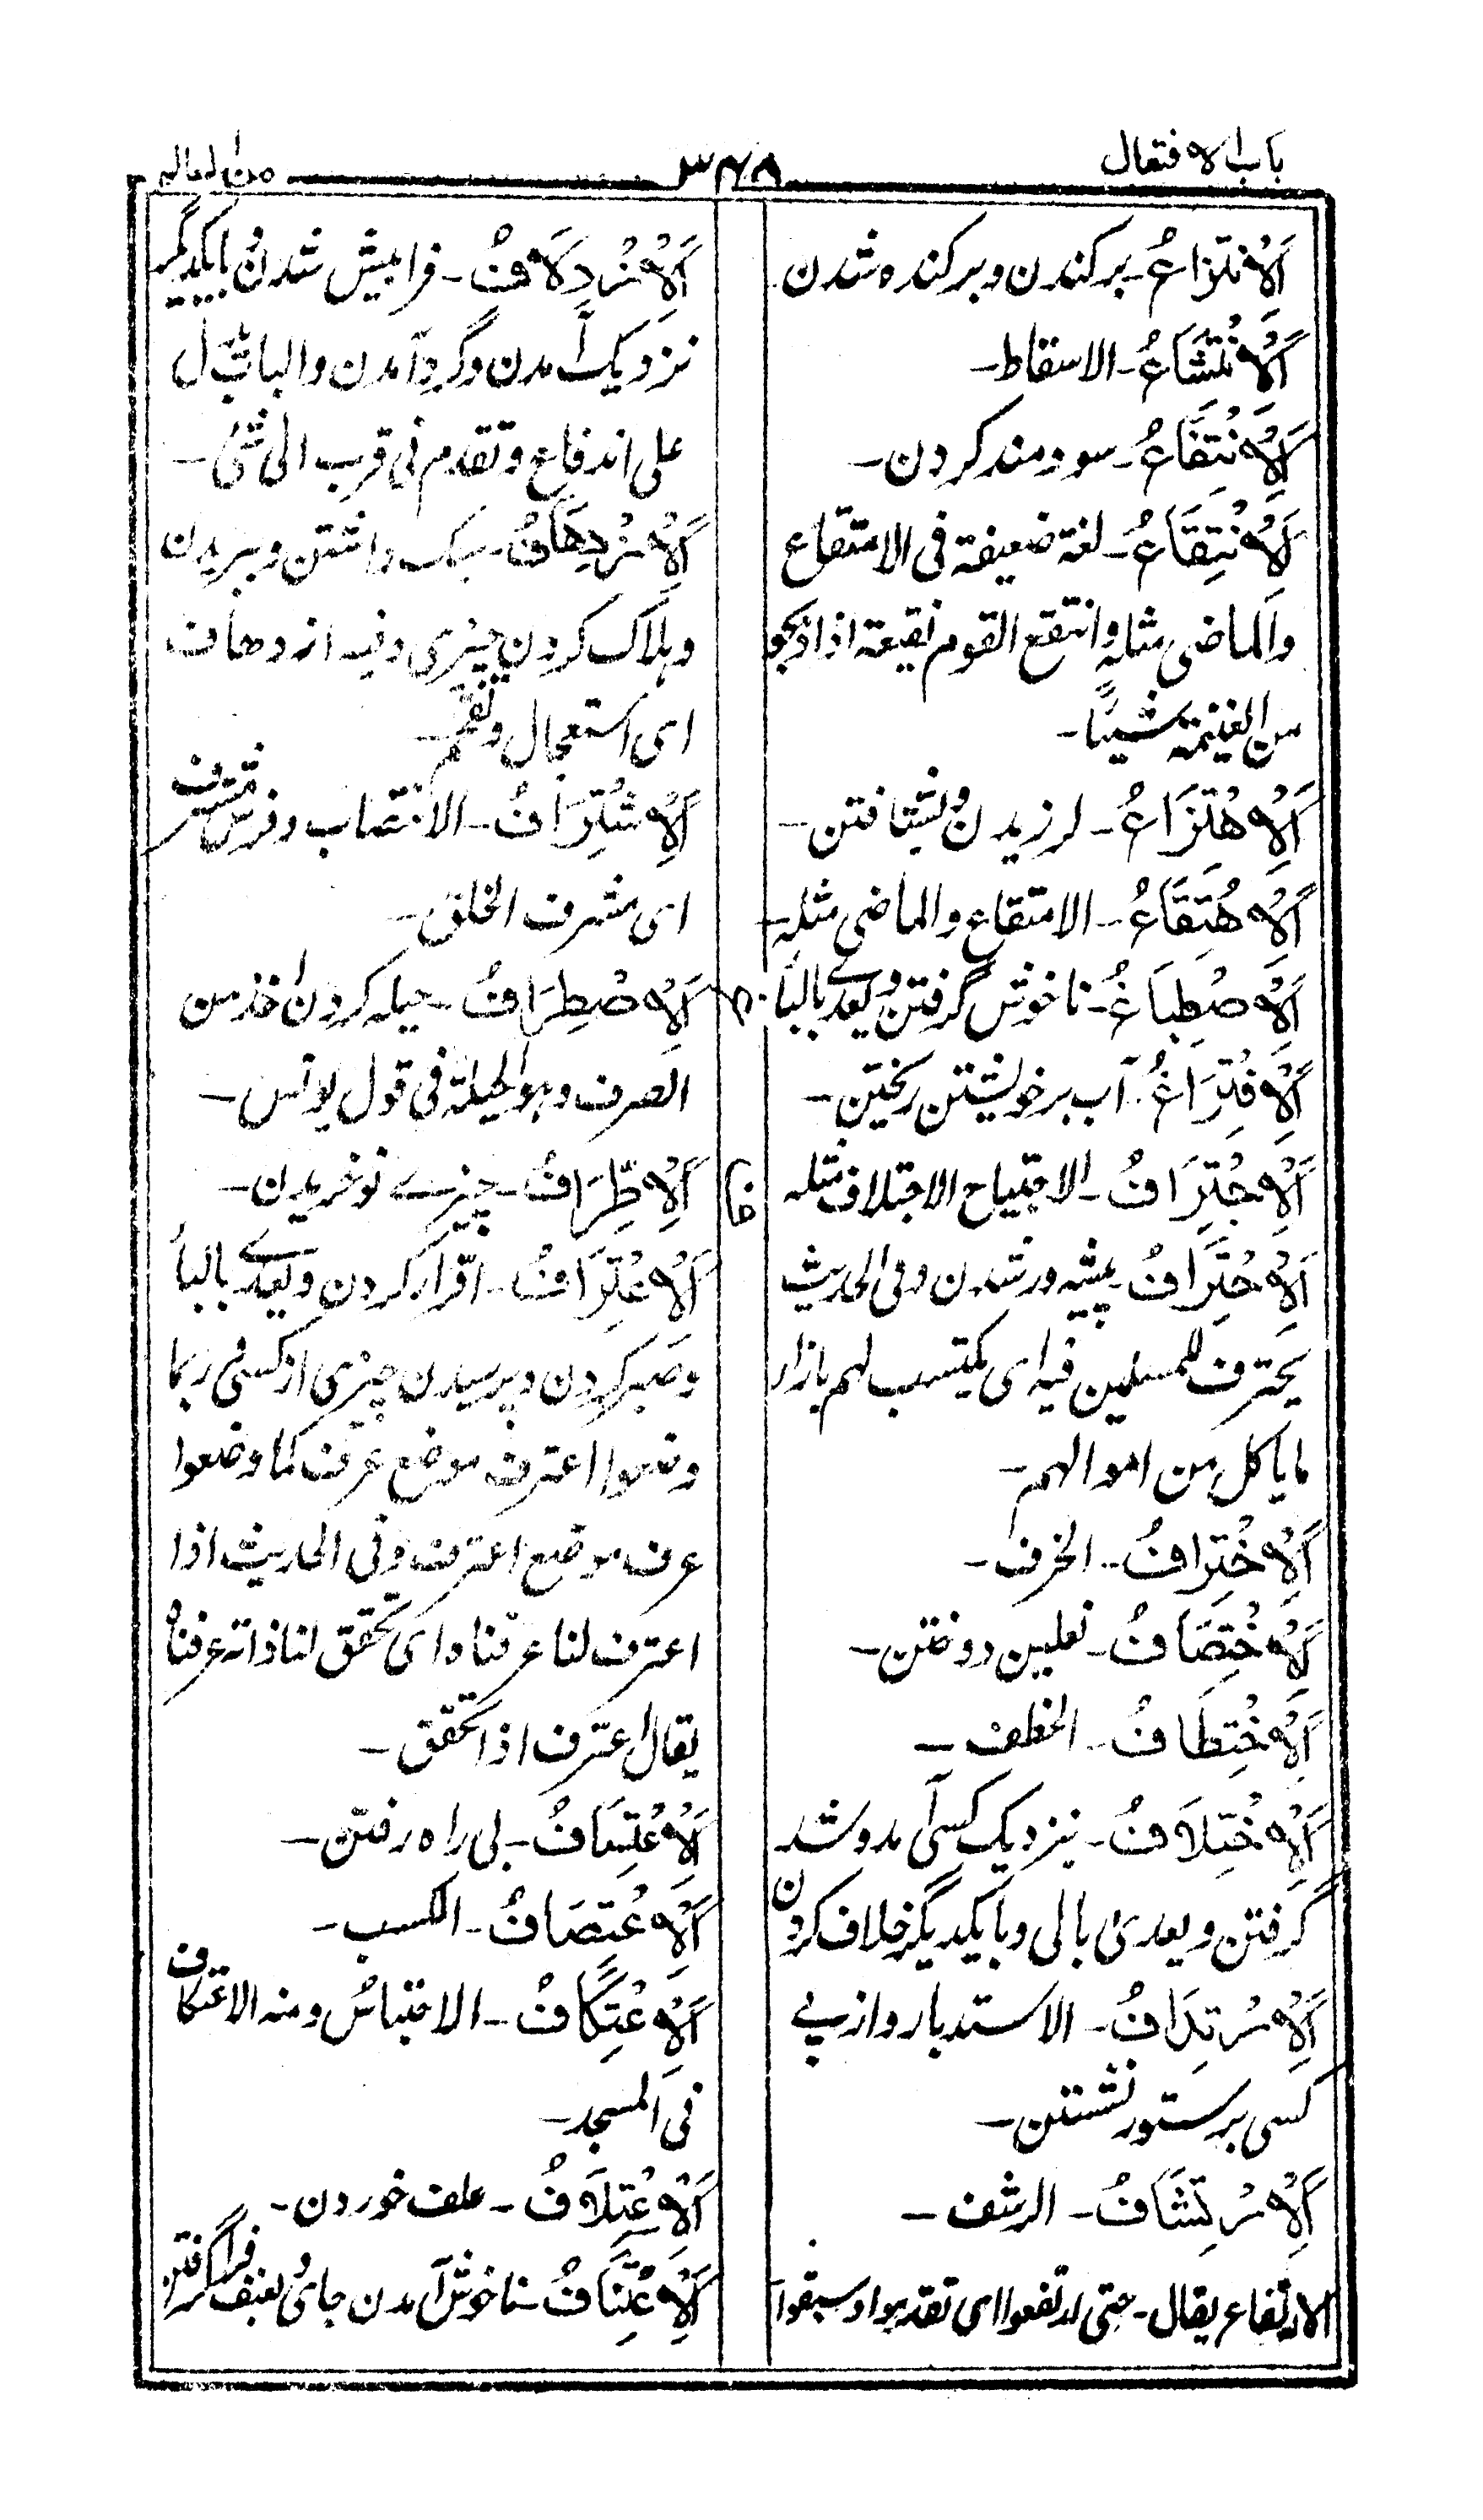 باب الافتعال
۳۶۸
من السالم
اَلْاِنْتِزَاعُ۔ برکندن و برکنده شدن
اَلْاِنْتِشَاعُ۔ الاسقاط۔
اَلْاِنْتِفَاعُ۔ سودمند کردن۔
اَلْاِنْتِقَاعُ۔ لغة ضعیفة فی الامتقاع
والماضی مثله وانتقع القوم نقیعة اذا ذبحوا
من الغنیمة شیئاً۔
اَلْاِهْتِزَاعُ۔ لرزیدن و بشتافتن۔
اَلْاِهْتِقَاعُ۔ الامتقاع والماضی مثله۔
اَلْاِصْطِبَاغُ۔ ناخوش گرفتن ویعدی بالباء
اَلْاِفْتِرَاغُ۔ آب برخویشتن ریختن۔
اَلْاِجْتِرَافُ۔ الاجتیاح الاجتلاف مثله
اَلْاِحْتِرَافُ پیشه ور شدن وفی الحدیث
یحترف للمسلمین فیه ای یکتسب لهم بازاء
ما یاکل من اموالهم۔
اَلْاِخْتِرَافُ۔ الخرف۔
اَلْاِخْتِصَافُ۔ نعلین دوختن۔
اَلْاِخْتِطَافُ۔ الخطف۔
اَلْاِخْتِلَافُ۔ نزدیک کسی آمد و شد
گرفتن ویعدی بالی و بایکدیگر خلاف کردن
اَلْاِرْتِدَافُ۔ الاستدبار و از پی
کسی بر ستور نشستن۔
اَلْاِرْتِشَافُ۔ الرشف۔
الارتفاع یقال۔ حتی ارتفعوا ای تقدموا وسبقوا
اَلْاِزْدِلَافُ۔ فرا پیش شدن و بایکدیگر
نزدیک آمدن و گرد آمدن والباب یدل
علی اندفاع وتقدم فی قرب الی شئ۔
اَلْاِزْدِهَافُ۔ سبک داشتن و ببریدن
و هلاک کردن چیزی وفیه ازدهاف
ای استعجال وتقحم۔
اَلْاِشْتِرَافُ۔ الانتصاب وفرس مشترف
ای مشرف الخلق۔
اَلْاِصْطِرَافُ۔ حیله کردن اخذ من
الصرف وهو الحیلة فی قول یونس۔
خا
اَلْاِطِّرَافُ۔ چیزے نو خریدن۔
اَلْاِعْتِرَافُ۔ اقرار کردن ویعدی بالباء
و صبر کردن و پرسیدن چیزی از کسی وربما
وضعوا اعترف موضع عرف کما وضعوا
عرف موضع اعترف وفی الحدیث اذا
اعترف لنا عرفناه ای تحقق لنا ذاته عرفناه
یقال اعترف اذا تحقق۔
اَلْاِعْتِسَافُ۔ بی راه رفتن۔
اَلْاِعْتِصَافُ۔ الکسب۔
اَلْاِعْتِكَافُ۔ الاحتباس ومنه الاعتکاف
فی المسجد۔
اَلْاِعْتِلَافُ۔ علف خوردن۔
اَلْاِعْتِنَافُ۔ ناخوش آمدن جای و بعنف فراگرفتن